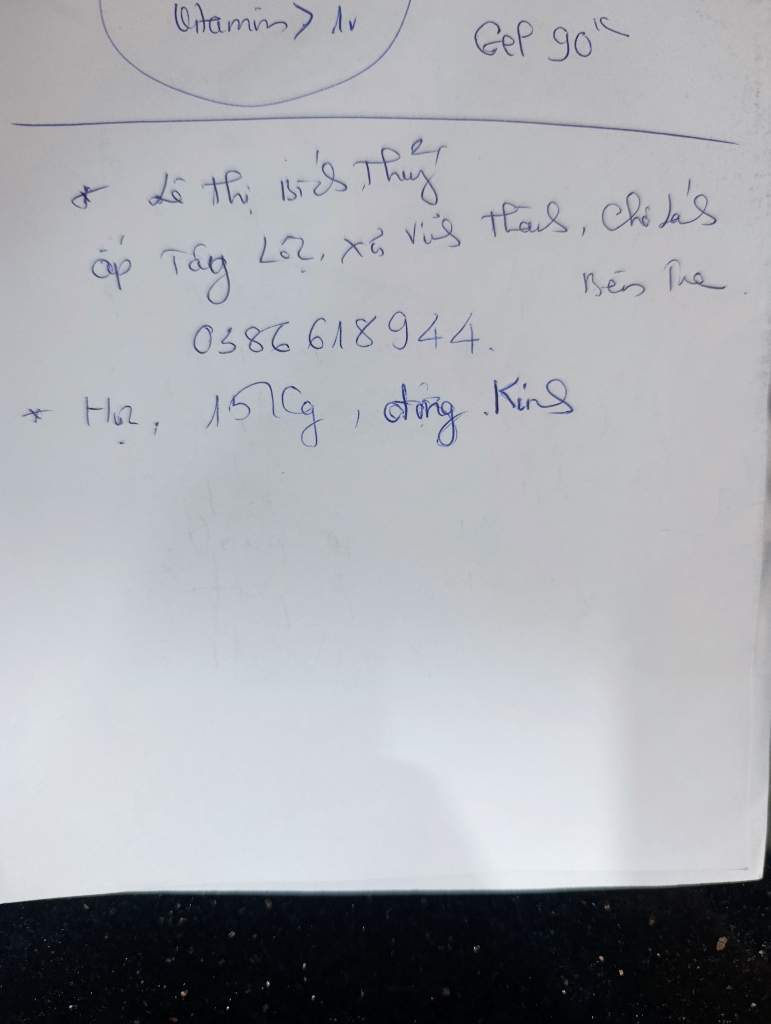 Vitamin > 1v
GEP 90
* Lê Thị Bích Thuỷ
ấp Tây Lộc, xã Vĩnh Thành, Chợ Lách
Bến Tre.
0386 618 944.
* 15 Kg, động Kinh